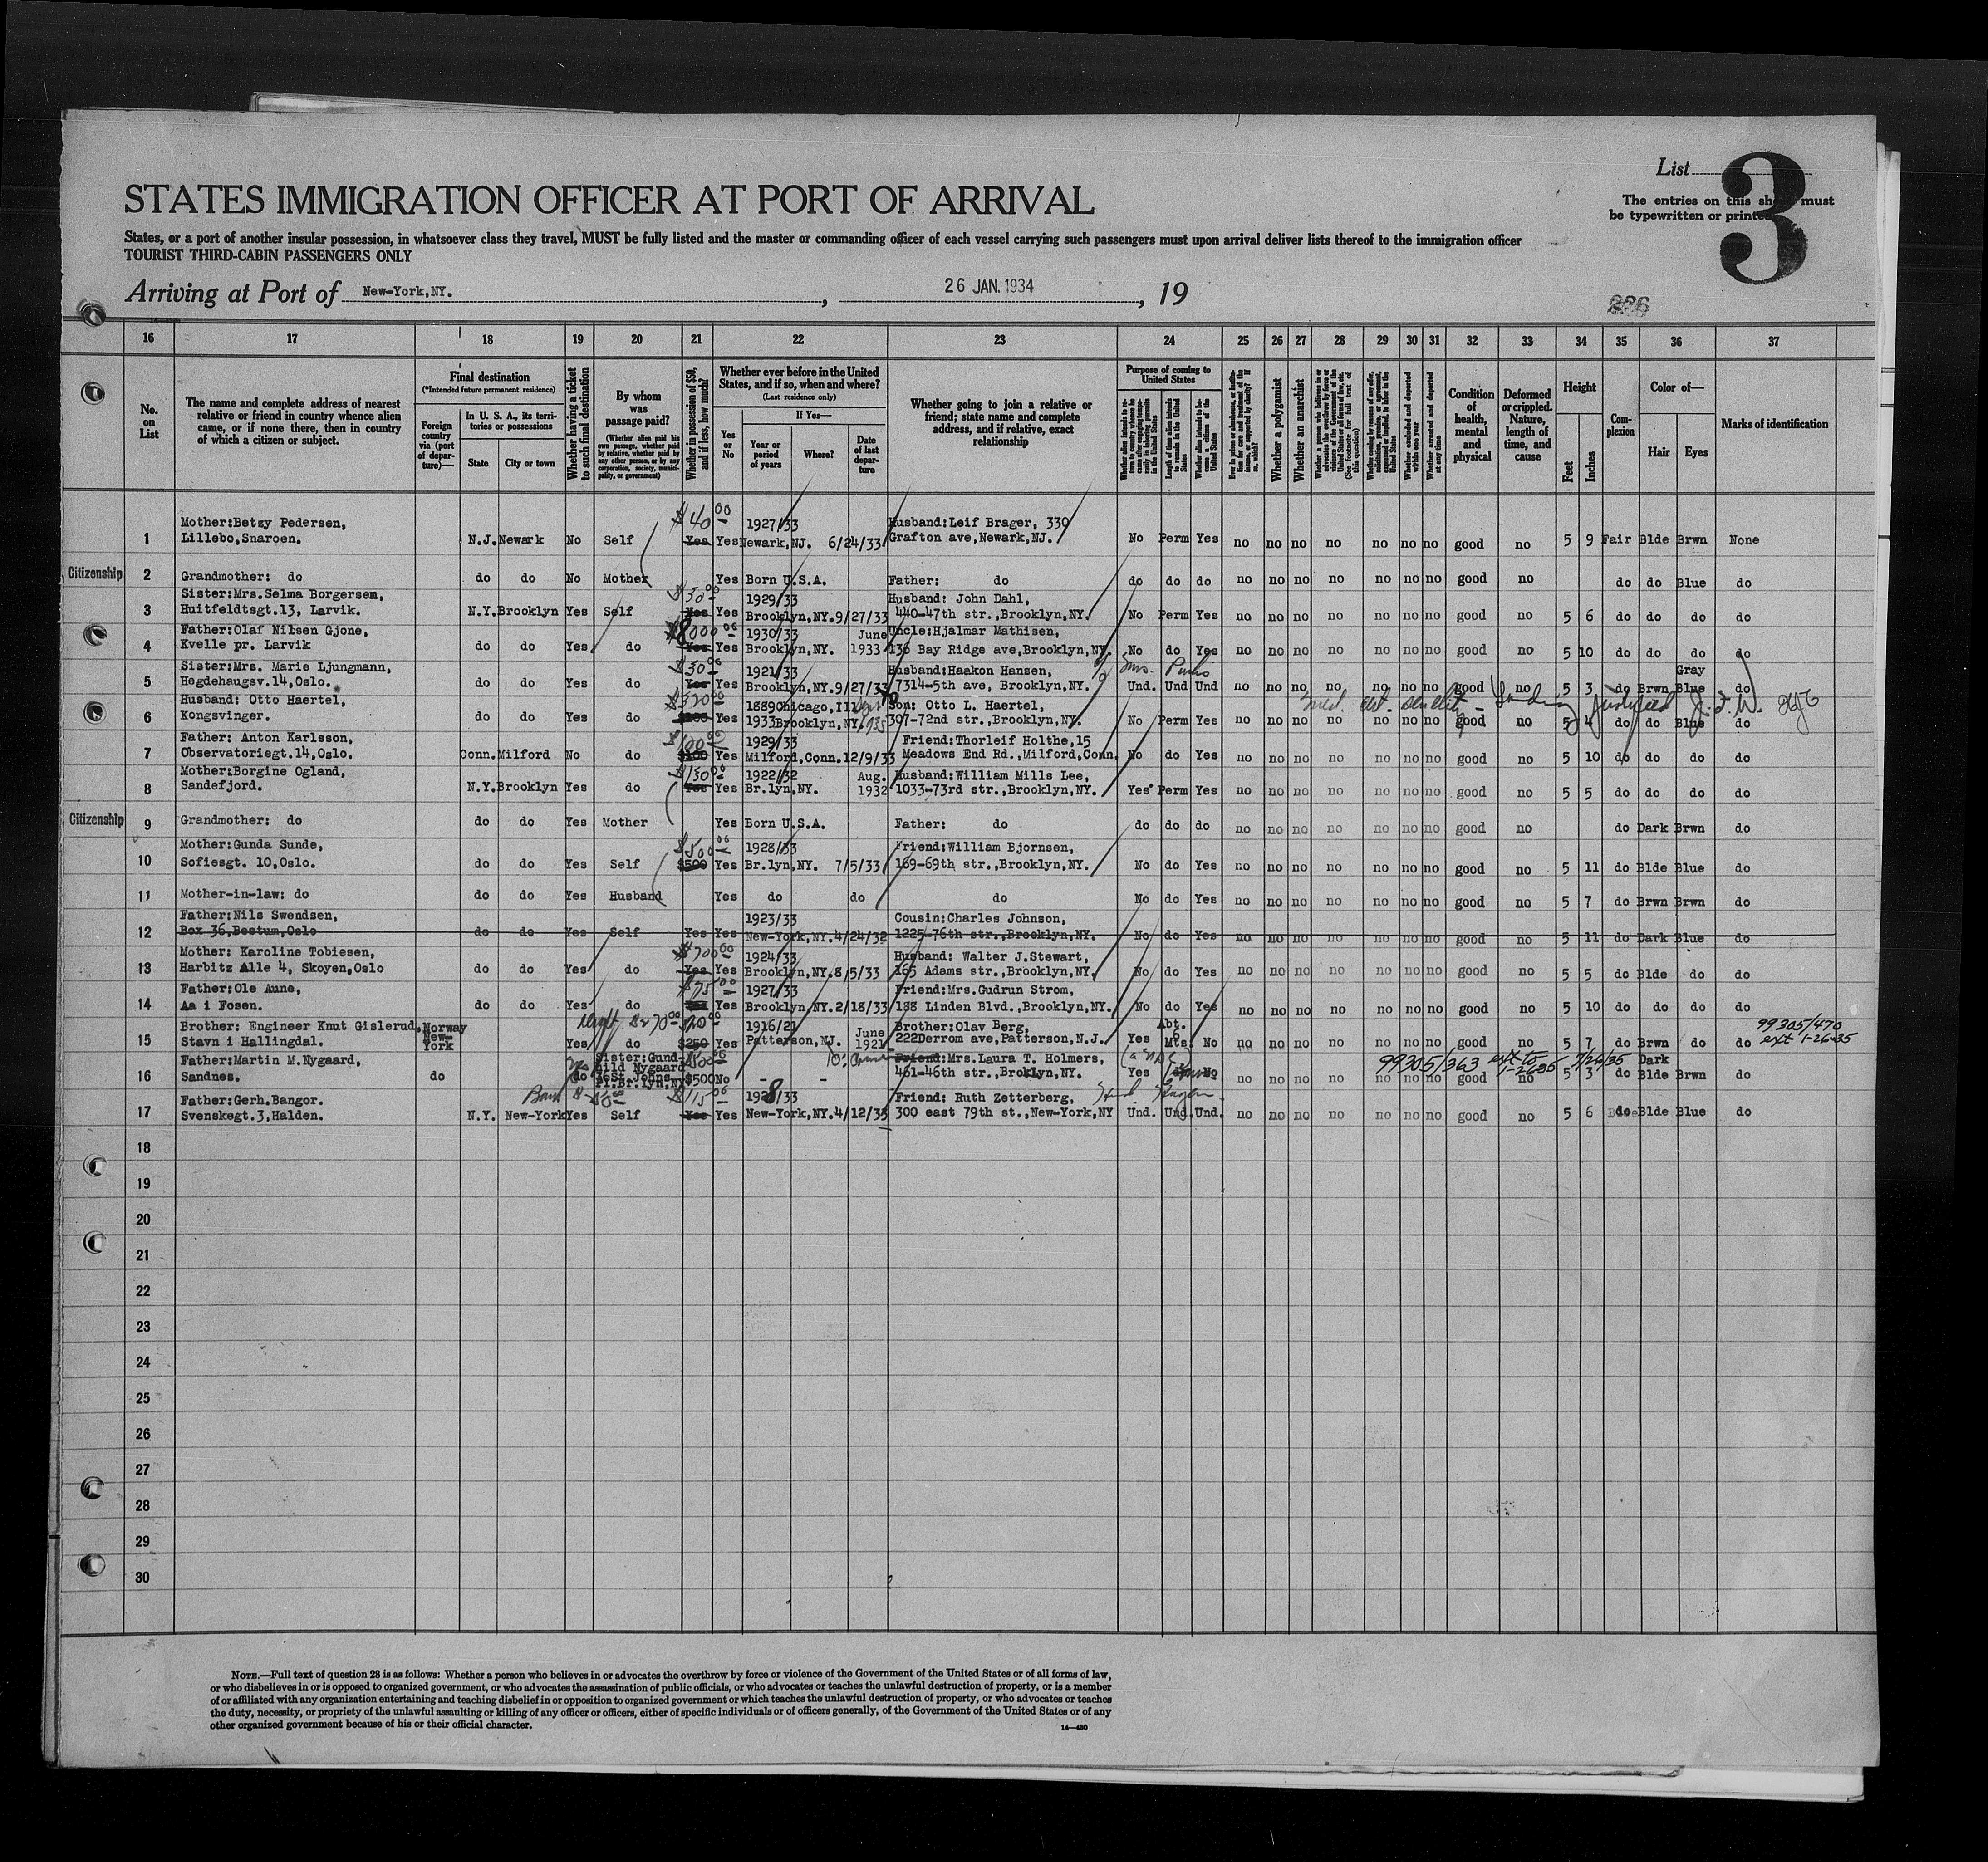 List
3
The entries on this sheet must
be typewritten or printed
STATES IMMIGRATION OFFICER AT PORT OF ARRIVAL
States, or a port of another insular possession, in whatsoever class they travel, MUST be fully listed and the master or commanding officer of each vessel carrying such passengers must upon arrival deliver lists thereof to the immigration officer
TOURIST THIRD-CABIN PASSENGERS ONLY
Arriving at Port of New-York,NY. , 26 JAN. 1934 , 19
16 17 18 19 20 21 22 23 24 25 26 27 28 29 30 31 32 33 34 35 36 37
No. on List
The name and complete address of nearest
relative or friend in country whence alien
came, or if none there, then in country
of which a citizen or subject.
Final destination
(*Intended future permanent residence)
Foreign country via (port of departure)—
In U. S. A., its territories or possessions
State
City or town
Whether having a ticket to such final destination
By whom was passage paid?
(Whether alien paid his own passage, whether paid by relative, whether paid by any other person, or by any corporation, society, municipality, or government)
Whether in possession of $50, and if less, how much?
Whether ever before in the United
States, and if so, when and where?
(Last residence only)
Yes or No
If Yes—
Year or period of years
Where?
Date of last departure
Whether going to join a relative or
friend; state name and complete
address, and if relative, exact
relationship
Purpose of coming to
United States
Whether a polygamist
Whether an anarchist
Condition of health, mental and physical
Deformed or crippled. Nature, length of time, and cause
Height
Feet
Inches
Complexion
Color of—
Hair
Eyes
Marks of identification
Mother:Betzy Pedersen, $40 00 1927/33 Husband:Leif Brager, 339
1 Lillebo,Snaroen. N.J. Newark No Self Yes Yes Newark,NJ. 6/24/33 Grafton ave,Newark,NJ. No Perm Yes no no no no no no no good no 5 9 Fair Blde Brwn None
Citizenship 2 Grandmother: do do do No Mother Yes Born U.S.A. Father: do do do do no no no no no no no good no do do Blue do
Sister:Mrs.Selma Borgersen, 1929/33 Husband: John Dahl,
3 Huitfeldtsgt.13, Larvik. N.Y. Brooklyn Yes Self Yes Yes Brooklyn,NY. 9/27/33 440-47th str.,Brooklyn,NY. No Perm Yes no no no no no no no good no 5 6 do do do do
Father:Olaf Nilsen Gjone, 1930/33 June Uncle:Hjalmar Mathisen,
4 Kvelle pr. Larvik do do Yes do Yes Yes Brooklyn,NY. 1933 136 Bay Ridge ave,Brooklyn,NY. No do Yes no no no no no no no good no 5 10 do do do do
Sister:Mrs. Marie Ljungmann, 1921/33 Husband:Haakon Hansen, Gray
5 Hegdehaugsv.14,Oslo. do do Yes do Yes Yes Brooklyn,NY. 9/27/33 7314-5th ave, Brooklyn,NY. Und. Und Und no no no no no no no good no 5 3 do Brwn Blue do
Husband: Otto Haertel, 1889 Chicago,Ill. Son: Otto L. Haertel,
6 Kongsvinger. do do Yes do Yes 1933 Brooklyn,NY. 307-72nd str.,Brooklyn,NY. No Perm Yes no no no no no no no good no 5 4 do do Blue do
Father: Anton Karlsson, 1929/33 Friend:Thorleif Holthe,15
7 Observatoriegt.14,Oslo. Conn. Milford No do Yes Milford,Conn. 12/9/33 Meadows End Rd.,Milford,Conn. No do Yes no no no no no no no good no 5 10 do do do do
Mother:Borgine Ogland, 1922/32 Aug. Husband:William Mills Lee,
8 Sandefjord. N.Y. Brooklyn Yes do Yes Yes Br.lyn,NY. 1932 1033-73rd str.,Brooklyn,NY. Yes Perm Yes no no no no no no no good no 5 5 do do do do
Citizenship 9 Grandmother: do do do Yes Mother Yes Born U.S.A. Father: do do do do no no no no no no no good no do Dark Brwn do
Mother:Gunda Sunde, 1928/33 Friend:William Bjornsen,
10 Sofiesgt. 10,Oslo. do do Yes Self $500 Yes Br.lyn,NY. 7/5/33 169-69th str.,Brooklyn,NY. No do Yes no no no no no no no good no 5 11 do Blde Blue do
11 Mother-in-law: do do do Yes Husband Yes do do do No do Yes no no no no no no no good no 5 7 do Brwn Brwn do
Father:Nils Swendsen, 1923/33 Cousin:Charles Johnson,
12 Box 36,Bestum,Oslo do do Yes Self Yes Yes New-York,NY. 4/24/32 1225-76th str.,Brooklyn,NY. No do Yes no no no no no no no good no 5 11 do Dark Blue do
Mother: Karoline Tobiesen, $700 00 1924/33 Husband: Walter J.Stewart,
13 Harbitz Alle 4, Skoyen,Oslo do do Yes do Yes Yes Brooklyn,NY. 8/5/33 165 Adams str.,Brooklyn,NY. No do Yes no no no no no no no good no 5 5 do Blde do do
Father:Ole Aune, $75 00 1927/33 Friend:Mrs.Gudrun Strom,
14 Aa i Fosen. do do Yes do Yes Brooklyn,NY. 2/18/33 188 Linden Blvd.,Brooklyn,NY. No do Yes no no no no no no no good no 5 10 do do do do
Brother: Engineer Knut Gislerud, Norway 1916/21 June Brother:Olav Berg, Abt. 99305/470
15 Stavn i Hallingdal. New-York Yes do $250 Yes Patterson,NJ. 1921 222Derrom ave,Patterson,N.J. Yes Mts. No no no no no no no no good no 5 7 do Brwn do do ext 1-26-35
Father:Martin M.Nygaard, Sister:Gundhild Nygaard Friend:Mrs.Laura T. Holmers, 99305/363 Dark
16 Sandnes. do do 36St.Johns Pl.Br.lyn,NY $500 No - - 461-46th str.,Broklyn,NY. Yes No no no no no no no no good no 5 3 do Blde Brwn do
Father:Gerh.Bangor. $115 00 1928/33 Friend: Ruth Zetterberg,
17 Svenskegt.3,Halden. N.Y. New-York Yes Self Yes Yes New-York,NY. 4/12/33 300 east 79th st.,New-York,NY Und. Und. Und. no no no no no no no good no 5 6 do Blde Blue do
18
19
20
21
22
23
24
25
26
27
28
29
30
NOTE.—Full text of question 28 is as follows: Whether a person who believes in or advocates the overthrow by force or violence of the Government of the United States or of all forms of law,
or who disbelieves in or is opposed to organized government, or who advocates the assassination of public officials, or who advocates or teaches the unlawful destruction of property, or is a member
of or affiliated with any organization entertaining and teaching disbelief in or opposition to organized government or which teaches the unlawful destruction of property, or who advocates or teaches
the duty, necessity, or propriety of the unlawful assaulting or killing of any officer or officers, either of specific individuals or of officers generally, of the Government of the United States or of any
other organized government because of his or their official character.
14—430